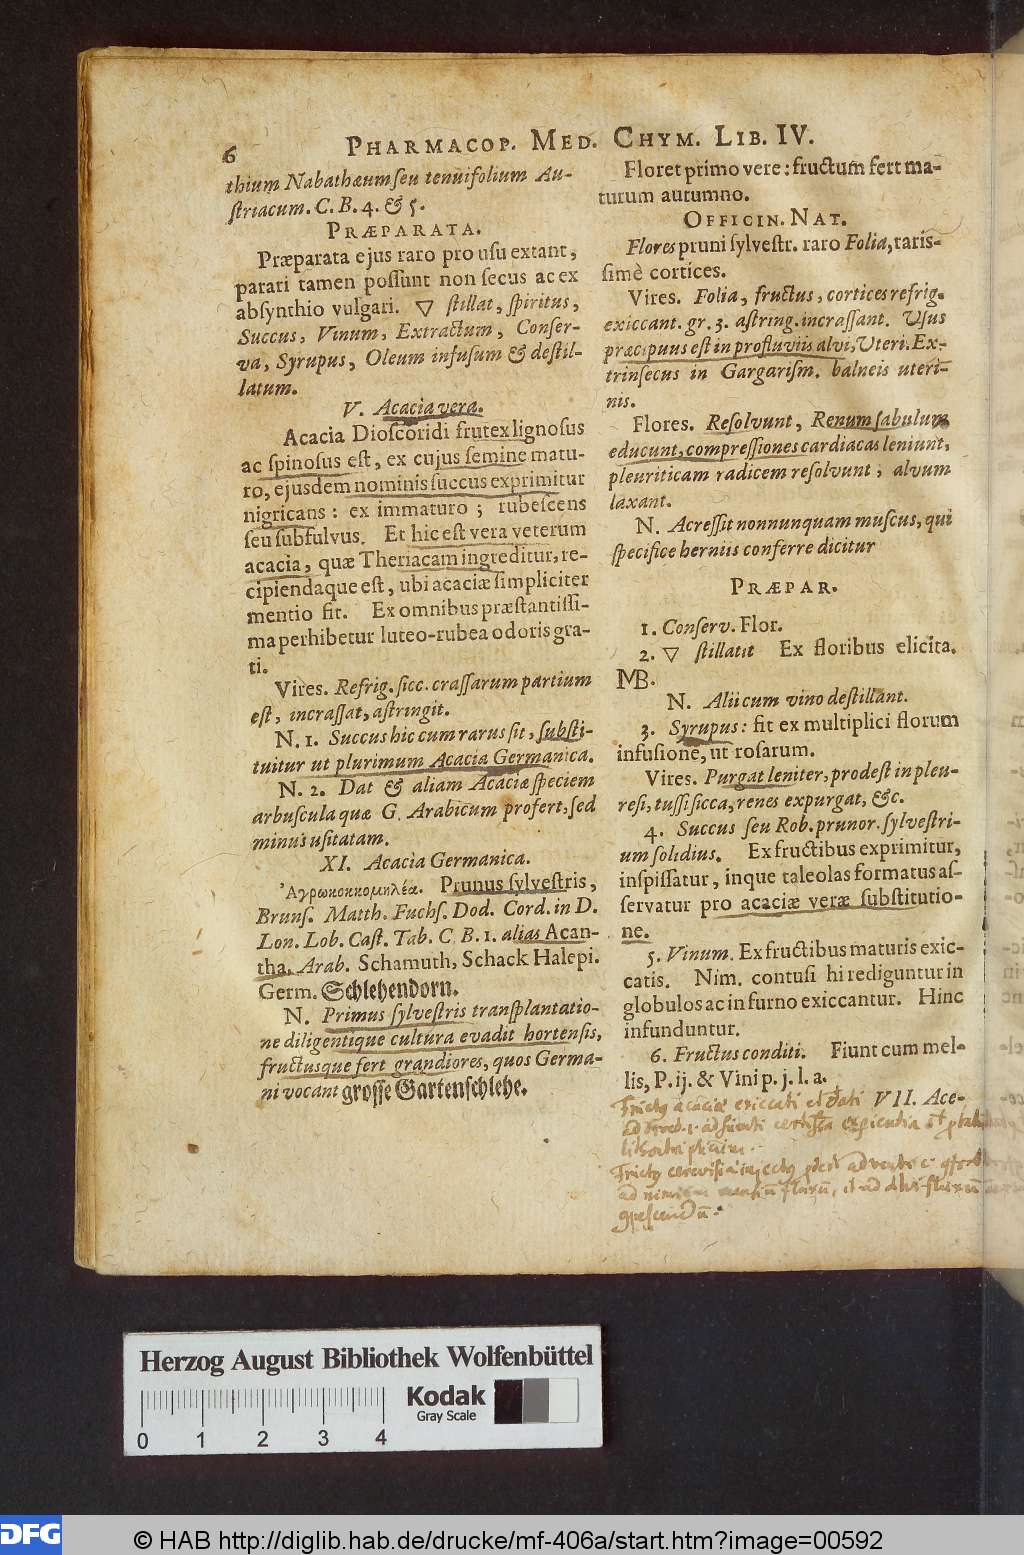 6 PHARMACOP. MED. CHYM. LIB. IV.
thium Nabathæum seu tenuifolium Au-
striacum. C. B. 4. & 5.
PRÆPARATA.
Præparata ejus raro pro usu extant,
parari tamen possunt non secus ac ex
absynthio vulgari. ▽ stillat, spiritus,
Succus, Vinum, Extractum, Conser-
va, Syrupus, Oleum infusum & destil-
latum.
V. Acacia vera.
Acacia Dioscoridi frutex lignosus
ac spinosus est, ex cujus semine matu-
ro, ejusdem nominis succus exprimitur
nigricans: ex immaturo; rubescens
seu subfulvus. Et hic est vera veterum
acacia, quæ Theriacam ingreditur, re-
cipiendaque est, ubi acaciæ simpliciter
mentio fit. Ex omnibus præstantissi-
ma perhibetur luteo-rubea odoris gra-
ti.
Vires. Refrig. sicc. crassarum partium
est, incrassat, astringit.
N. 1. Succus hic cum rarus sit, substi-
tuitur ut plurimum Acacia Germanica.
N. 2. Dat & aliam Acaciæ speciem
arbuscula quæ G. Arabicum profert, sed
minus usitatam.
XI. Acacia Germanica.
Ἀγρωκοκκομηλέα. Prunus sylvestris,
Bruns. Matth. Fuchs. Dod. Cord. in D.
Lon. Lob. Cast. Tab. C. B. 1. alias Acan-
tha. Arab. Schamuth, Schack Halepi.
Germ. Schlehendorn.
N. Primus sylvestris transplantatio-
ne diligentique cultura evadit hortensis,
fructusque fert grandiores, quos Germa-
ni vocant grosse Gartenschlehe.
Floret primo vere: fructum fert ma-
turum autumno.
OFFICIN. NAT.
Flores pruni sylvestr. raro Folia, raris-
simè cortices.
Vires. Folia, fructus, cortices refrig.
exiccant. gr. 3. astring. incrassant. Usus
præcipuus est in profluviis alvi, Uteri. Ex-
trinsecus in Gargarism. balneis uteri-
nis.
Flores. Resolvunt, Renum sabulum
educunt, compressiones cardiacas leniunt,
pleuriticam radicem resolvunt, alvum
laxant.
N. Acressit nonnunquam muscus, qui
specifice herniis conferre dicitur
PRÆPAR.
1. Conserv. Flor.
2. ▽ stillatit Ex floribus elicita.
MB.
N. Alii cum vino destillant.
3. Syrupus: fit ex multiplici florum
infusione, ut rosarum.
Vires. Purgat leniter, prodest in pleu-
resi, tussi sicca, renes expurgat, &c.
4. Succus seu Rob. prunor. sylvestri-
um solidius. Ex fructibus exprimitur,
inspissatur, inque taleolas formatus as-
servatur pro acaciæ veræ substitutio-
ne.
5. Vinum. Ex fructibus maturis exic-
catis. Nim. contusi hi rediguntur in
globulos ac in furno exiccantur. Hinc
infunduntur.
6. Fructus conditi. Fiunt cum mel-
lis, P. ij. & Vini p. j. l. a.
VII. Ace-
Herzog August Bibliothek Wolfenbüttel
Kodak
Gray Scale
0 1 2 3 4
DFG
© HAB http://diglib.hab.de/drucke/mf-406a/start.htm?image=00592